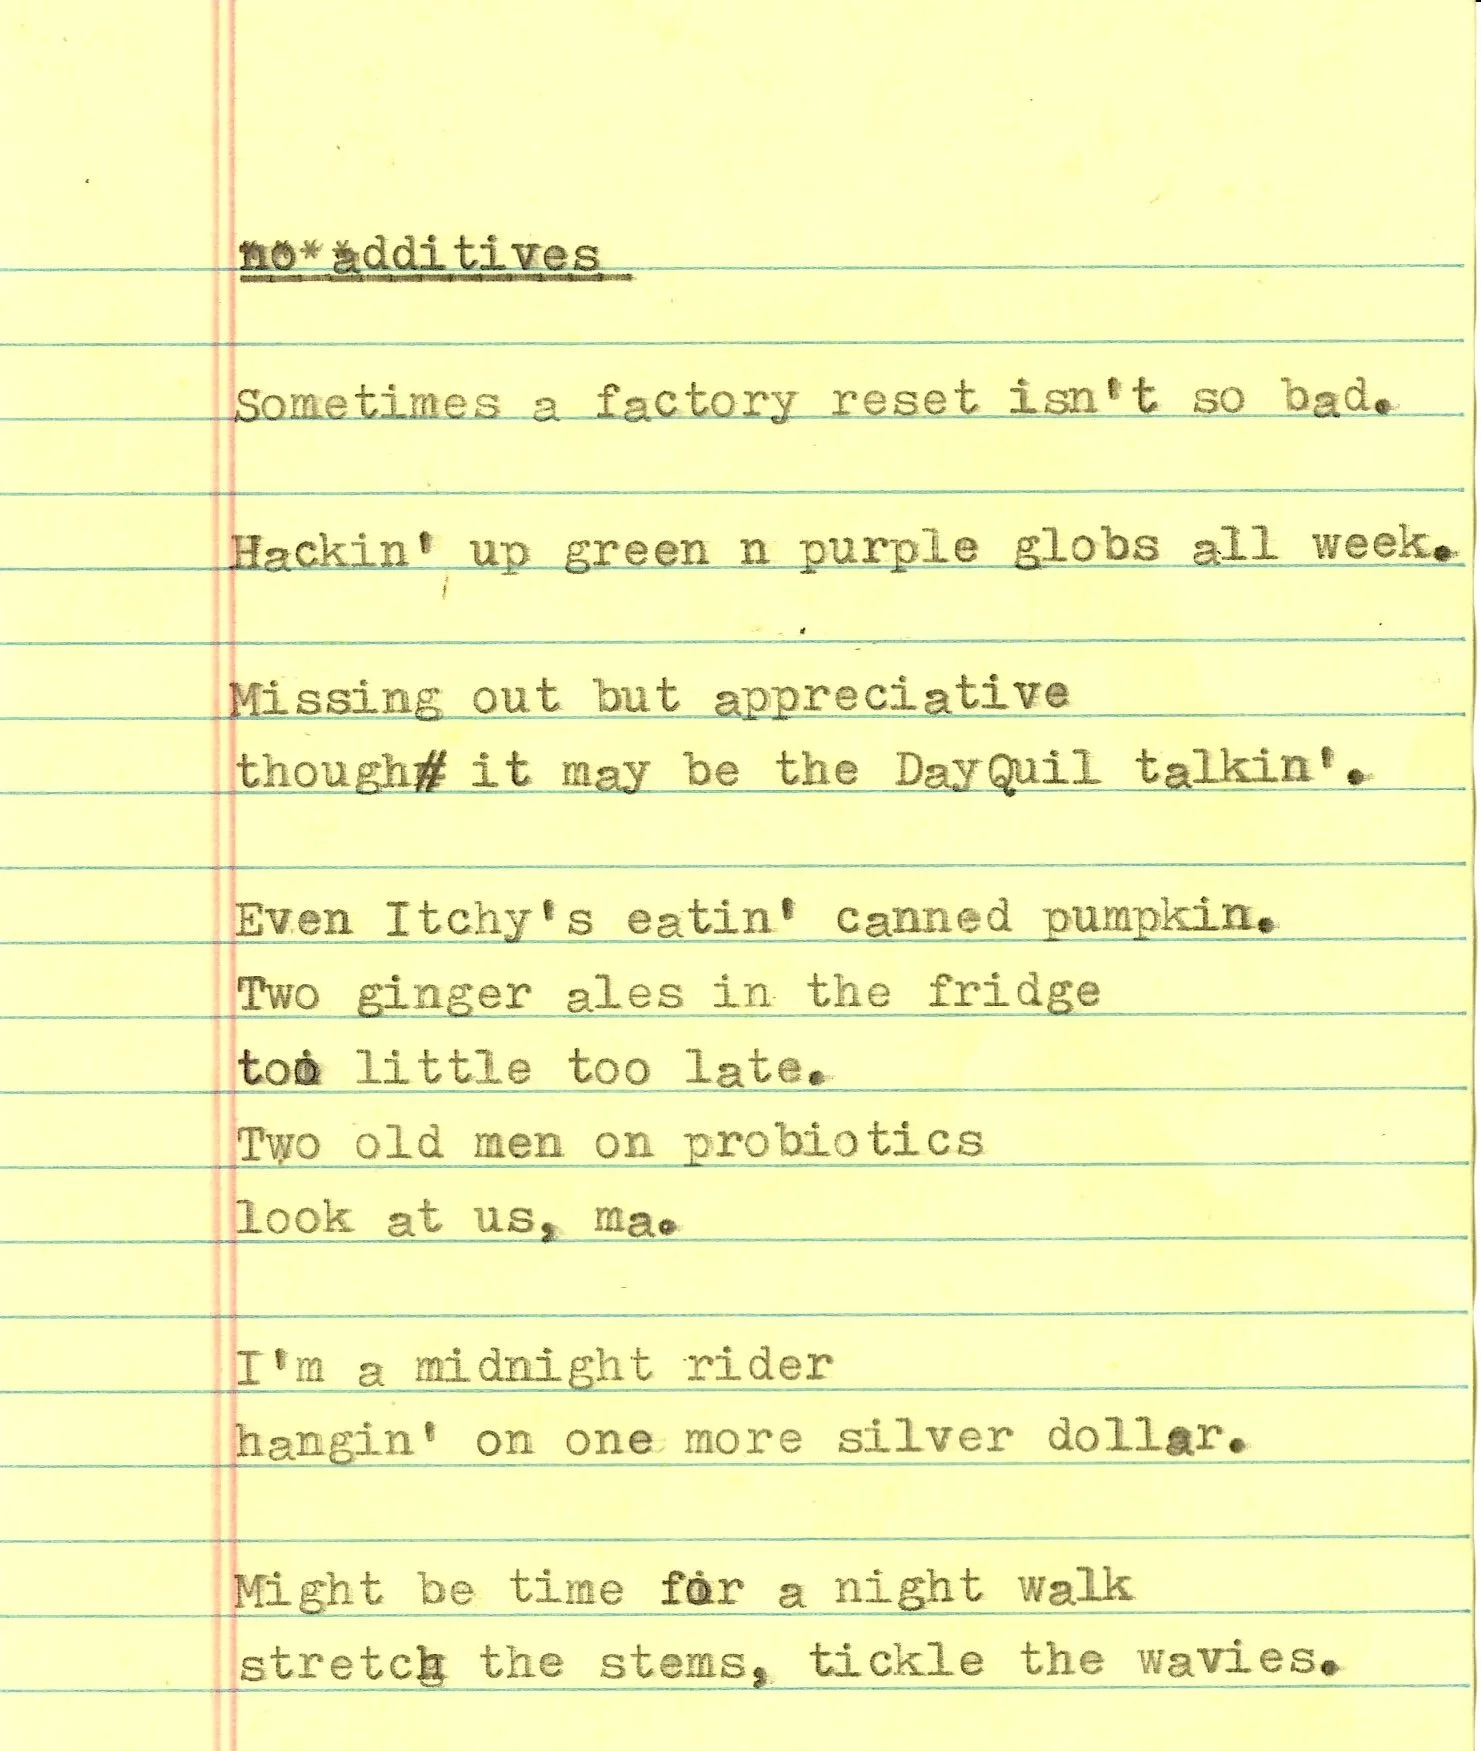 no additives
Sometimes a factory reset isn't so bad.
Hackin' up green n purple globs all week.
Missing out but appreciative
though it may be the DayQuil talkin'.
Even Itchy's eatin' canned pumpkin.
Two ginger ales in the fridge
too little too late.
Two old men on probiotics
look at us, ma.
I'm a midnight rider
hangin' on one more silver dollar.
Might be time for a night walk
stretch the stems, tickle the wavies.